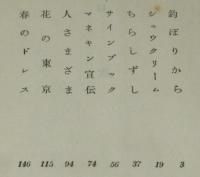 釣ぼりから 3
シュウクリーム 19
ちらしずし 37
サインブック 56
マネキン宣伝 74
人さまざま 94
花の東京 115
春のドレス 146